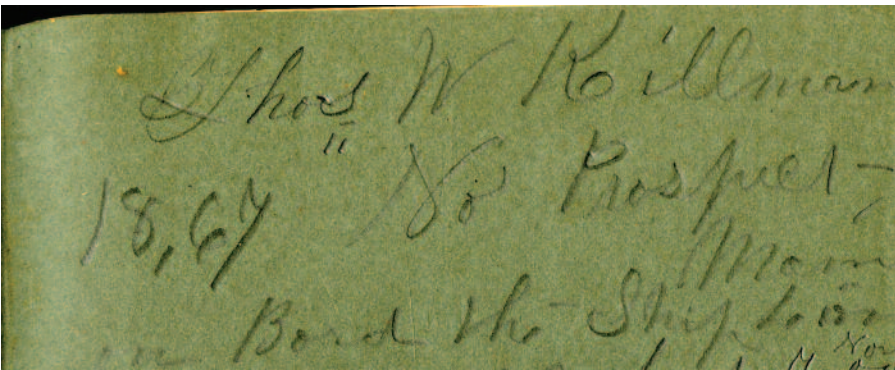 Thos W Killman
18,67 No Prospect
Main
on Bord the Ship